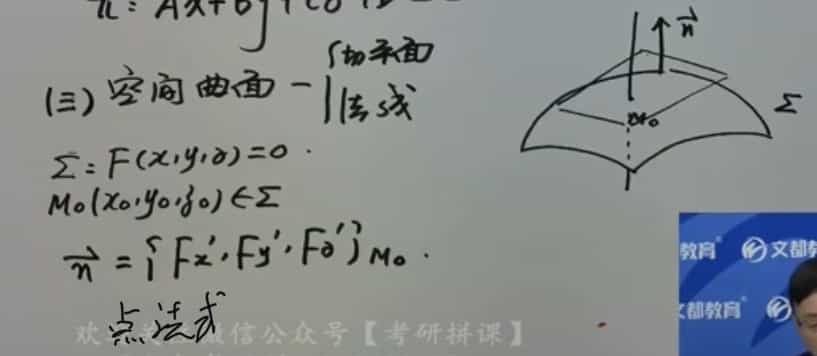 π: Ax+By+Cz+D=0
(三) 空间曲面 — { 切平面
法线
Σ: F(x,y,z)=0.
M₀(x₀,y₀,z₀)∈Σ
n⃗ = {Fx′, Fy′, Fz′}M₀.
点法式
n⃗
M₀
Σ
微信公众号【考研拼课】
教育 文都教
文都教育